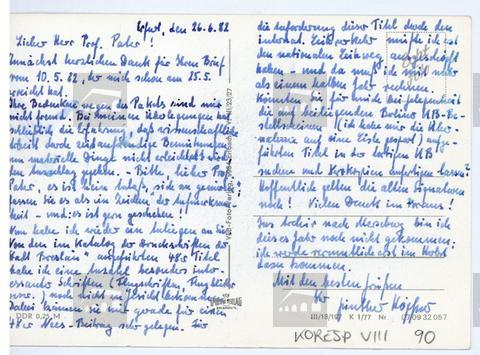 Erfurt, den 26.6.82
Lieber Herr Prof. Pater!
Zunächst herzlichen Dank für Ihren Brief
vom 10.5.82, der mich schon am 25.5.
erreicht hat.
Ihre Bedenken wegen des Pakets sind mir
nicht fremd. Bei meinen Überlegungen hat
schließlich die Erfahrung, daß wissenschaftliche
Arbeit durch zeitaufwendige Bemühungen
um materielle Dinge nicht erleichtert wird
den Ausschlag gegeben. - Bitte, lieber Prof.
Pater, es ist kein Anlaß, sich zu
lassen Sie es als ein Zeichen der
keit - und: es ist gern geschehen!
Nun habe ich wieder ein Anliegen an Sie
Von den im Katalog der Druckschriften der
Breslau" aufgeführten 48er Titel
habe ich eine Anzahl besonders inter-
essanter Schriften, Flugschriften, Flugblätter
noch nicht zu Gesicht bekommen.
Dabei können sie mir gerade für einen
48er Nees-Beitrag sehr gelegen. Für
die Anforderung dieser Titel durch den
internat. Leihverkehr müßte ich erst
den nationalen Leihweg ausgeschöpft
haben - und da muß ich mit mehr
als einem halben Jahr rechnen.
Könnten Sie für mich bei Gelegenheit
die auf beiliegenden Berliner UB-Be-
stellscheinen (ich habe mir die Über-
nahme auf eine Liste gespart) aufge-
führten Titel in der dortigen UB
suchen und Kopien anfertigen lassen?
Hoffentlich gelten die alten Signaturen
noch! Vielen Dank im Voraus!
Das Archiv nach Merseburg bin ich
dieses Jahr noch nicht gekommen;
ich werde vermutlich erst im Herbst
dazu kommen.
Mit den besten Grüßen
Ihr Günther
DDR 0,25 M
III/18/197 K 1/77 Nr. 07 09 32 057
KORESP VIII 90